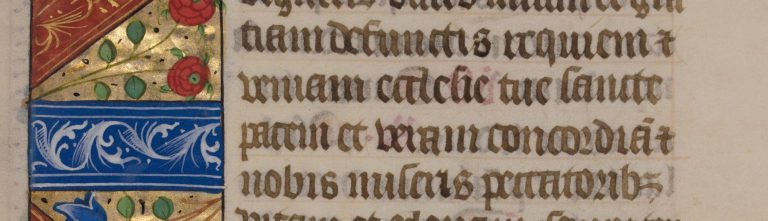 tiam defunctis requiem ⁊
veniam ecclesie tue sancte
pacem et veram concordiã ⁊
nobis miseris peccatoribꝫ